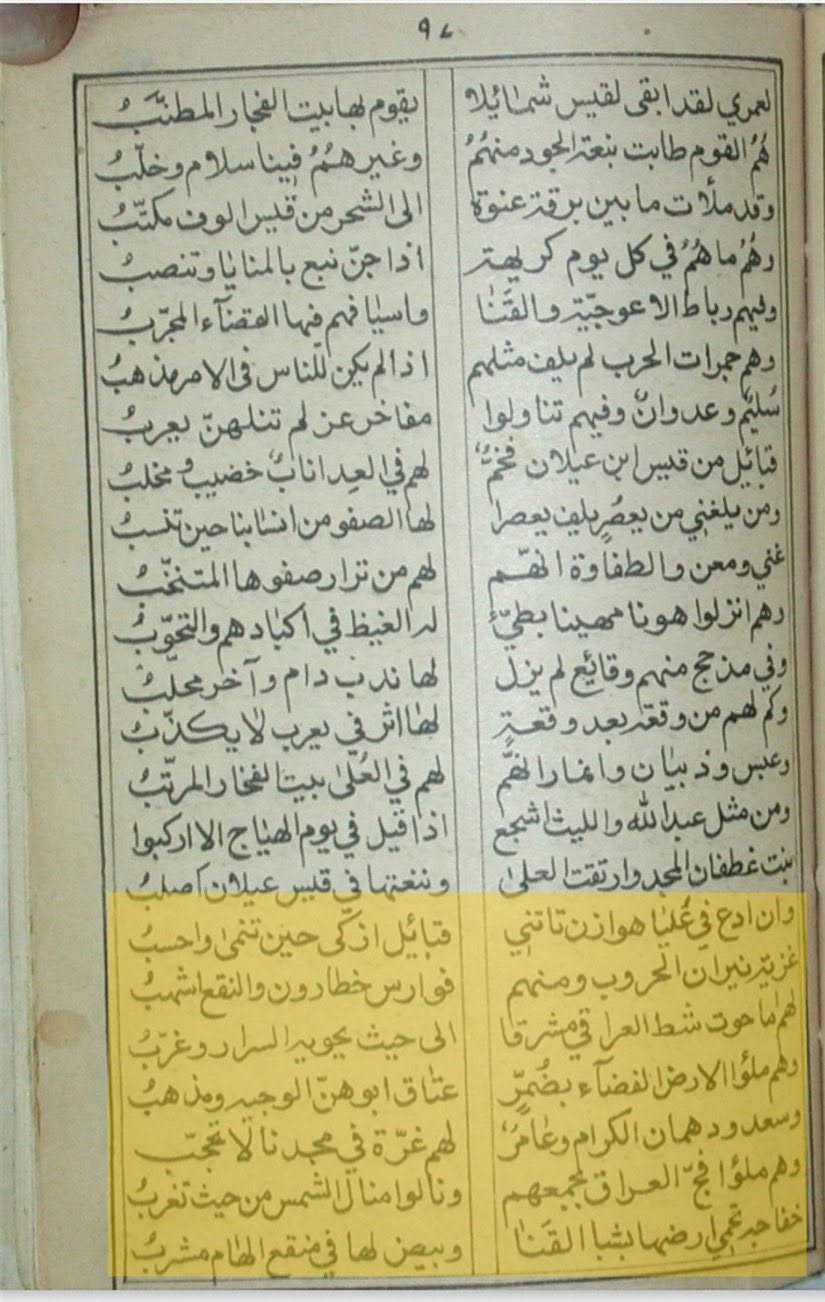 ٩٨
لعمري لقد ابقى لقيس شمائلا يقوم بها بيت الفخار المطنّبُ
هُمُ القوم طابت بنعة الجود منهُمُ وغيرهُمُ فينا سلام وخلّبُ
وقد ملأت ما بين برقة عنوة الى الشحر من قيس الوف مكتّبُ
وهُمُ ما هُمُ في كل يوم كريهة اذا جنّ نبع بالمنايا وتنصبُ
وفيهم رباط الاعوجيّة والقَنا واسيافهم فيها القضآء المجرّبُ
وهم جمرات الحرب لم يلف مثلهم اذا لم يكن للناس في الامر مذهبُ
سُليم وعدوانٌ وفيهم تناولوا مفاخر عز لم تنلهنّ يعربُ
قبائيل من قيس ابن عيلان فخمٌ لهم في العدا نابٌ خضيبٌ ومخلبُ
ومن يلغني من يعصُرٍ يلف يعصرا لها الصفو من انسابنا حين تنسبُ
غني ومعن والطفاوة انهّم لهم من نزار صفوها المتنخّبُ
وهم انزلوا هونا مهينا بطيّءٍ له الغيظ في اكبادهم والتحوّبُ
وفي مذحج منهم وقائيع لم يزل لها ندب دام وآخر مجلّبُ
وكم لهم من وقعة بعد وقعةٍ لها اثر في يعرب لا يكذّبُ
وعبس وذبيان وانمار انهّم لهم في العُلى بيت الفخار المرتّبُ
ومن مثل عبد الله والليث اشجع اذا قيل في يوم الهياج الا اركبوا
بنت غطفان المجد وارتقت العلى ونبعتها في قيس عيلان اصلبُ
وان ادع في عُليا هوازن تاتني قبائيل ازكى حين تنمى واحسبُ
غزية نيران الحروب ومنهم فوارس خطارون والنقع اشهبُ
لهم ما حوت شط العراقي مشرقا الى حيث يحويه السرار وغرّبُ
وهم ملؤا الارض الفضآء بضُمرٍّ عتاق ابوهنّ الوجيه ومذهبُ
وسعد ودهمان الكرام وعامرٌ لهم غرّة في مجدنا لا تحجّبُ
وهم ملؤا فجّ العراق بجمعهم ونالوا منال الشمس من حيث تغربُ
خفاجه تحمي ارضها بشبا القَنا وبيض لها في منقع الهام مشربُ